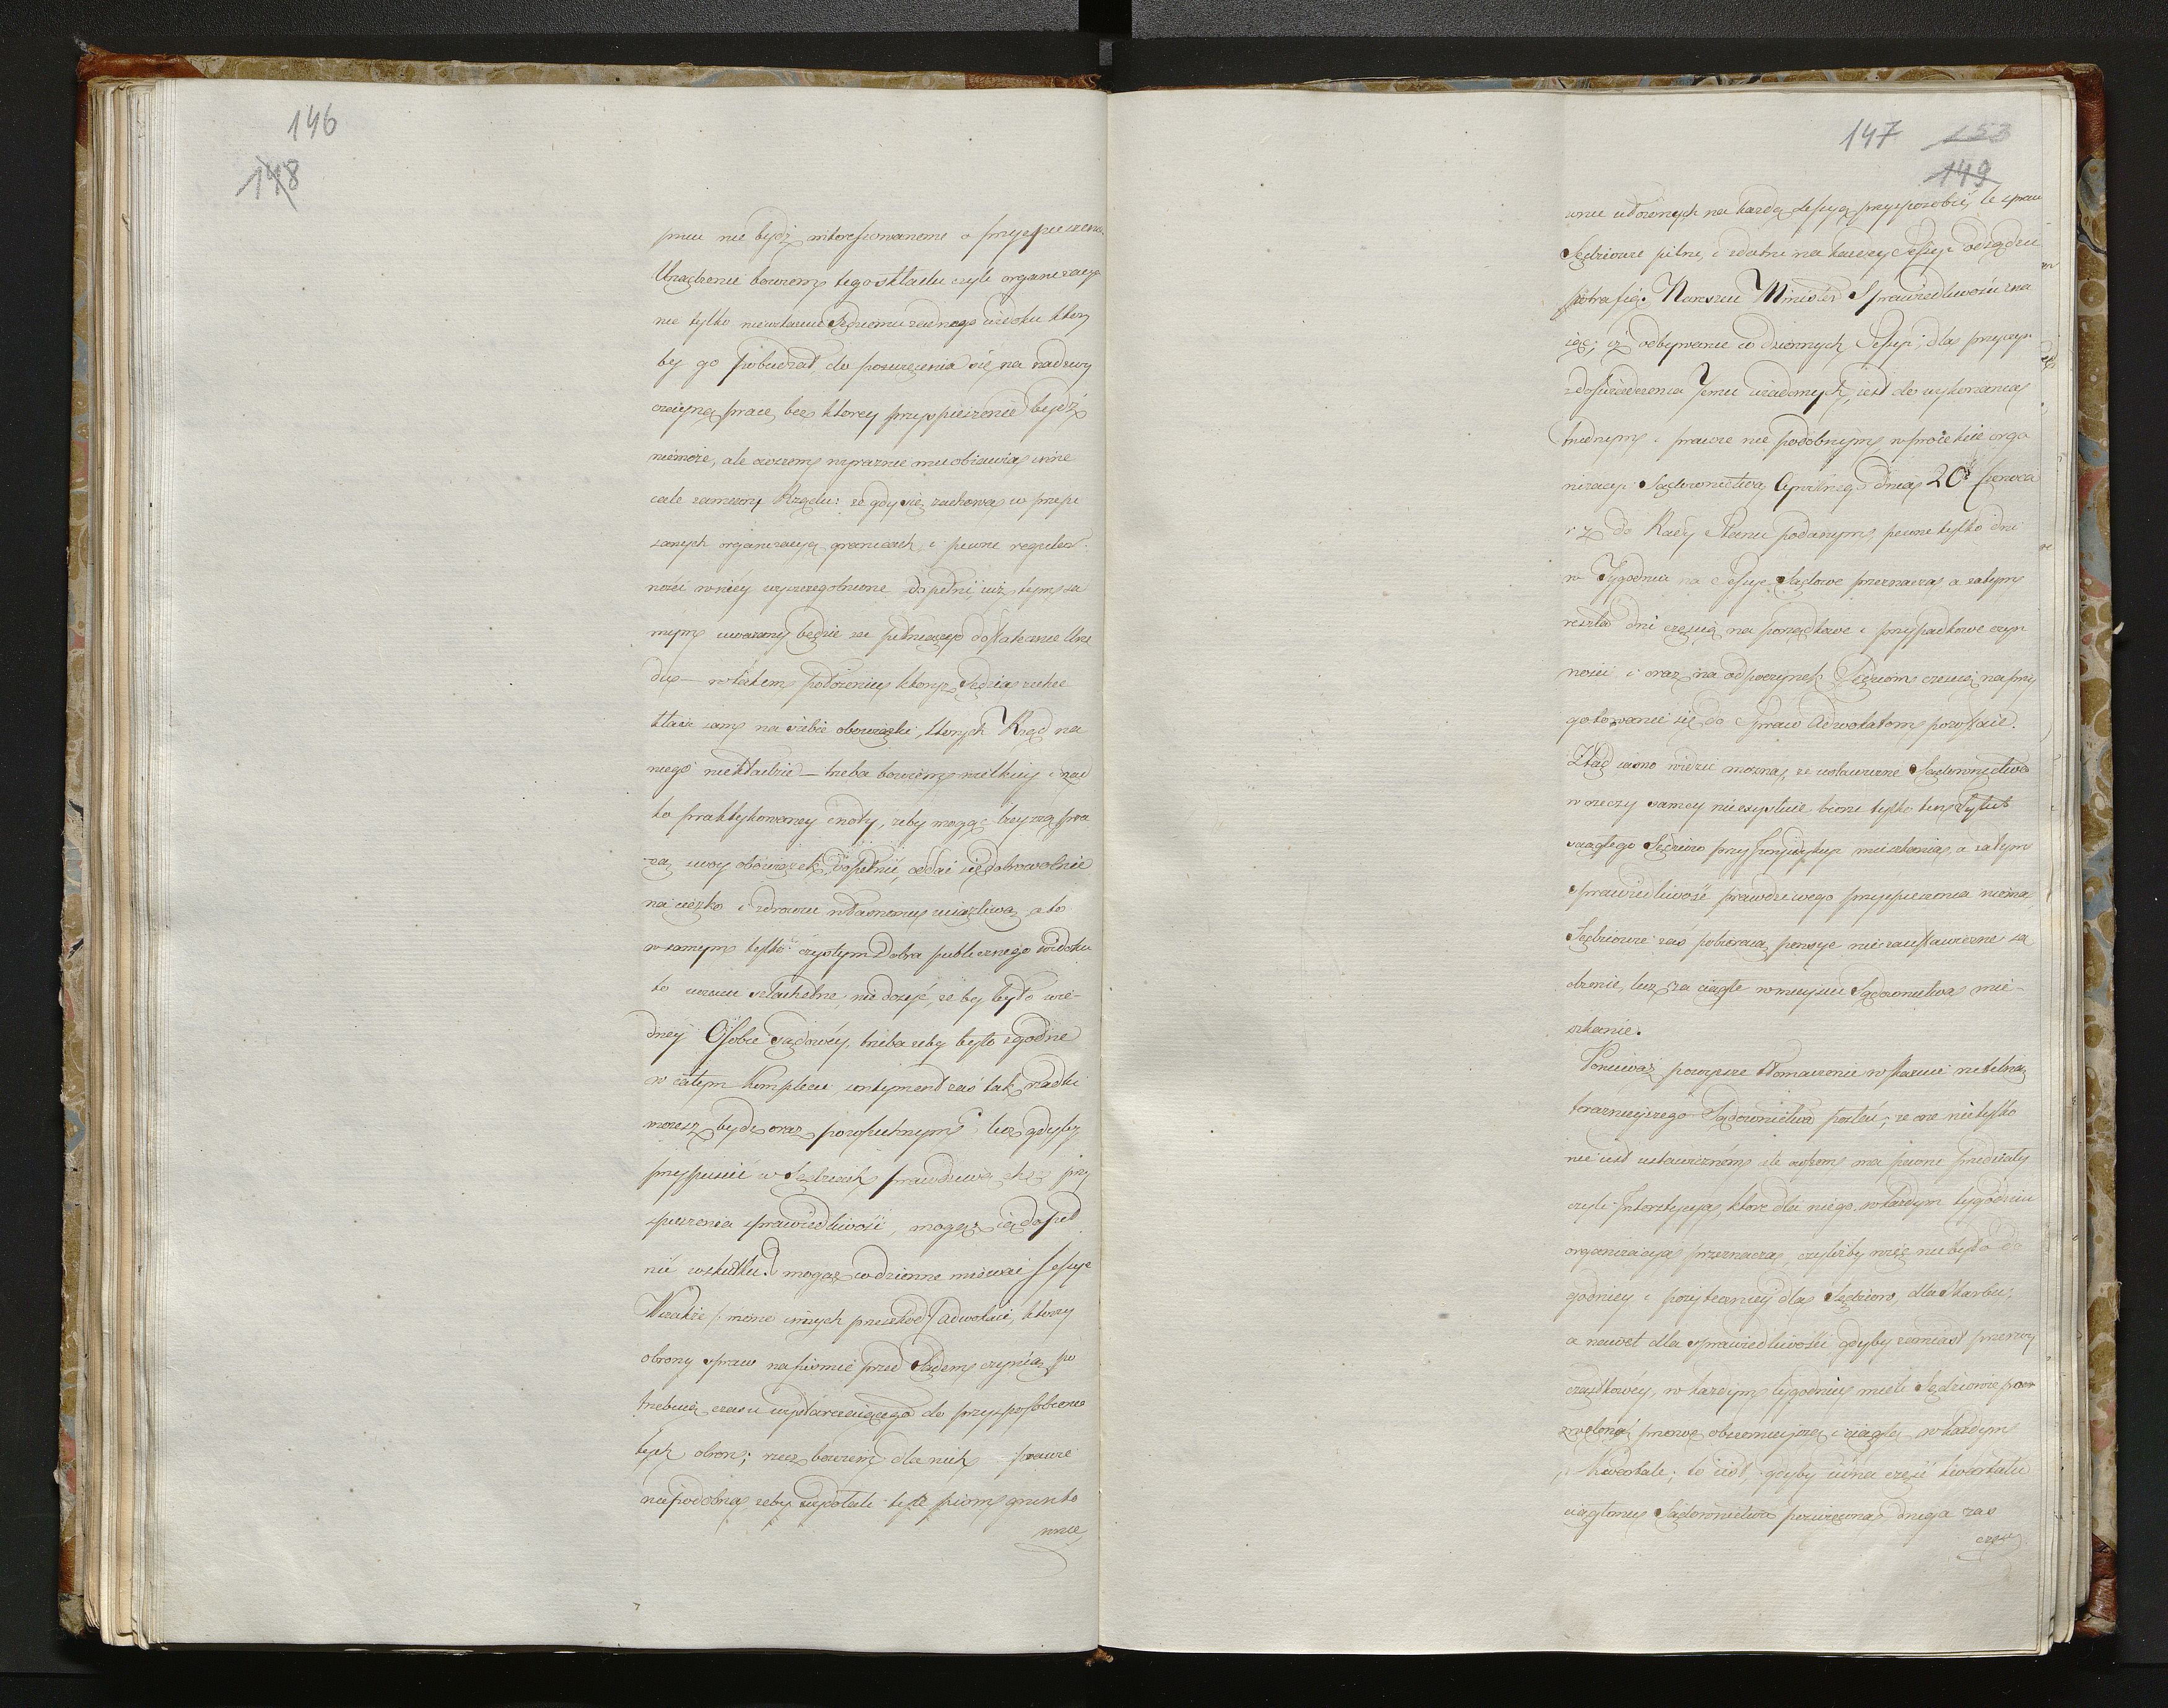 146
148
pieu nie bydź interessowanemi o przyspieszenie.
Urządzenie bowiem tego składu czyli organizacya
nie tylko niewskazuie Sędziemu żadnego widoku któryby
by go pobudzał do poswięcenia się na nadzwy
czayną pracę, bez którey przyspieszenie bydź
niemoże, ale owszem wyraznie mu obiawia inne
całe zamiary Rządu: że gdy się zachowa w przepi
sanych organizacyą granicach, i pewne regular
ności w niéy wyszczegolnione dopełni, iuż tym sa
mym uważany będzie za pełniącego dostatecznie Urzą
du — w takiem położeniu któryż Sędzia zechce
kłaść sam na siebie obowiązki, których Rząd na
niego niekładzie — trzeba bowiem wielkiey i rzad
ko praktykowaney cnoty, żeby mogąc lżeyszą pra
cą swoy obowiązek dopełnić, oddać się dobrowolnie
na ciężką i zdrowiu własnemu uciążliwą, a to
w samym tylko czystym Dobra publicznego widoku
to uczucie szlachetne, nie dosyć, żeby było w ie-
dnéy Osobie Sądowéy, trzeba żeby było zgodne
w całym komplecie, sentyment zaś tak rzadki
możesz bydź oraz powszechnym? lecz gdyby
przypuścić w Sędziach prawdziwą chęć przy
spieszenia sprawiedliwości, mogąż ią dopeł
nić w skutku? mogąż codzienne miewać Sessye
Wszakże /: mimo innych przeszkod :/ Adwokaci, którzy
obrony spraw na pismie przed Sądem czynią, po
trzebuią czasu wystarczaiącego do przysposobienia
tych obron; rzecz bowiem dla nich prawie
niepodobna, żeby zwołali też pism grunto
wnie,
147 153
149
wnie ułożonych na każdą Sessyą przysposobić, te spraw
Sędziowie pilni, i zdatni na każdey Sessyi odsądzić
potrafią. Nareszcie Minister Sprawiedliwości zna
iąc, iż odbywanie codziennych Sessyi, dla przyczyn
z doświadczenia Jemu wiadomych, iest do wykonania
trudnym i prawie nie podobnym, w proiekcie orga
nizacyi Sądownictwa Cywilnego dnia 20 Czerwca
r z do Rady Stanu podanym, pewne tylko dni
w Tygodniu na Sessye Sądowe przeznacza, a zatym
reszta dni częścią na porządkowe i przypadkowe czyn
ności i oraz na odpoczynek Sędziom częścią na przy
gotowanie się do Spraw Adwokatom pozostaie.
Ztąd iasno widzieć można, że ustawiczne Sądownictwo
w rzeczy samey nie exystuie bierze tylko ten Tytuł
z ciągłego Sędziów przy Jurysdykcyi mieszkania, a zatym
sprawiedliwość prawdziwego przyspieszenia niema,
Sędziowie zaś pobieraią pensye nie za ustawiczne są
dzenie, lecz za ciągłe w mieyscu Sądownictwa mie-
szkanie.
Ponieważ powyższe tłomaczenie wskazuie rzetelną
teraznieyszego Sądownictwa postać, że one nietylko
nie iest ustawicznem ale owszem ma pewne przedziały
czyli Interstycya, które dla niego w każdym tygodniu
organizacya przeznacza, czyliżby więc nie było do
godniey i pożyteczniey dla Sędziow, dla Skarbu,
a nawet dla Sprawiedliwości, gdyby zamiast przerwy
cząstkowéy, w każdym tygodniu mieli Sędziowie po
zwoloną przerwę obszernieyszą i ciągłą w każdym
Kwartale; to iest, gdyby iedna część kwartału
ciągłemu Sądownictwu poswięcona, druga zaś
część